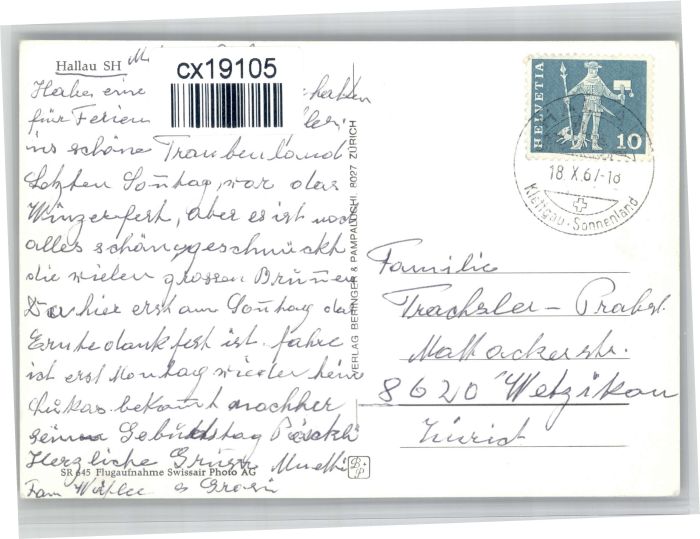 Hallau SH
cx19105
Habe eine
für Ferien
ins schöne Traubenland
Letzten Sontag, war das
Winzerfest, aber es ist noch
alles schön geschmückt
die vielen grossen Brunnen
Da hier erst am Sontag das
Erntedankfest ist. fahre
ist erst Montag wieder heim
Lukas bekomt nachher
sein Gebuhtstag Päckli
Herzliche Grüsse Muetti
Fam &
SR 645 Flugaufnahme Swissair Photo AG
VERLAG BERINGER & PAMPALUCHI, 8027 ZÜRICH
B+P
HELVETIA
10
18 X.67-18
Klettgau-Sonnenland
Familie
Trachsler - Probst.
Mattackerstr.
8620 Wetzikon
Zürich